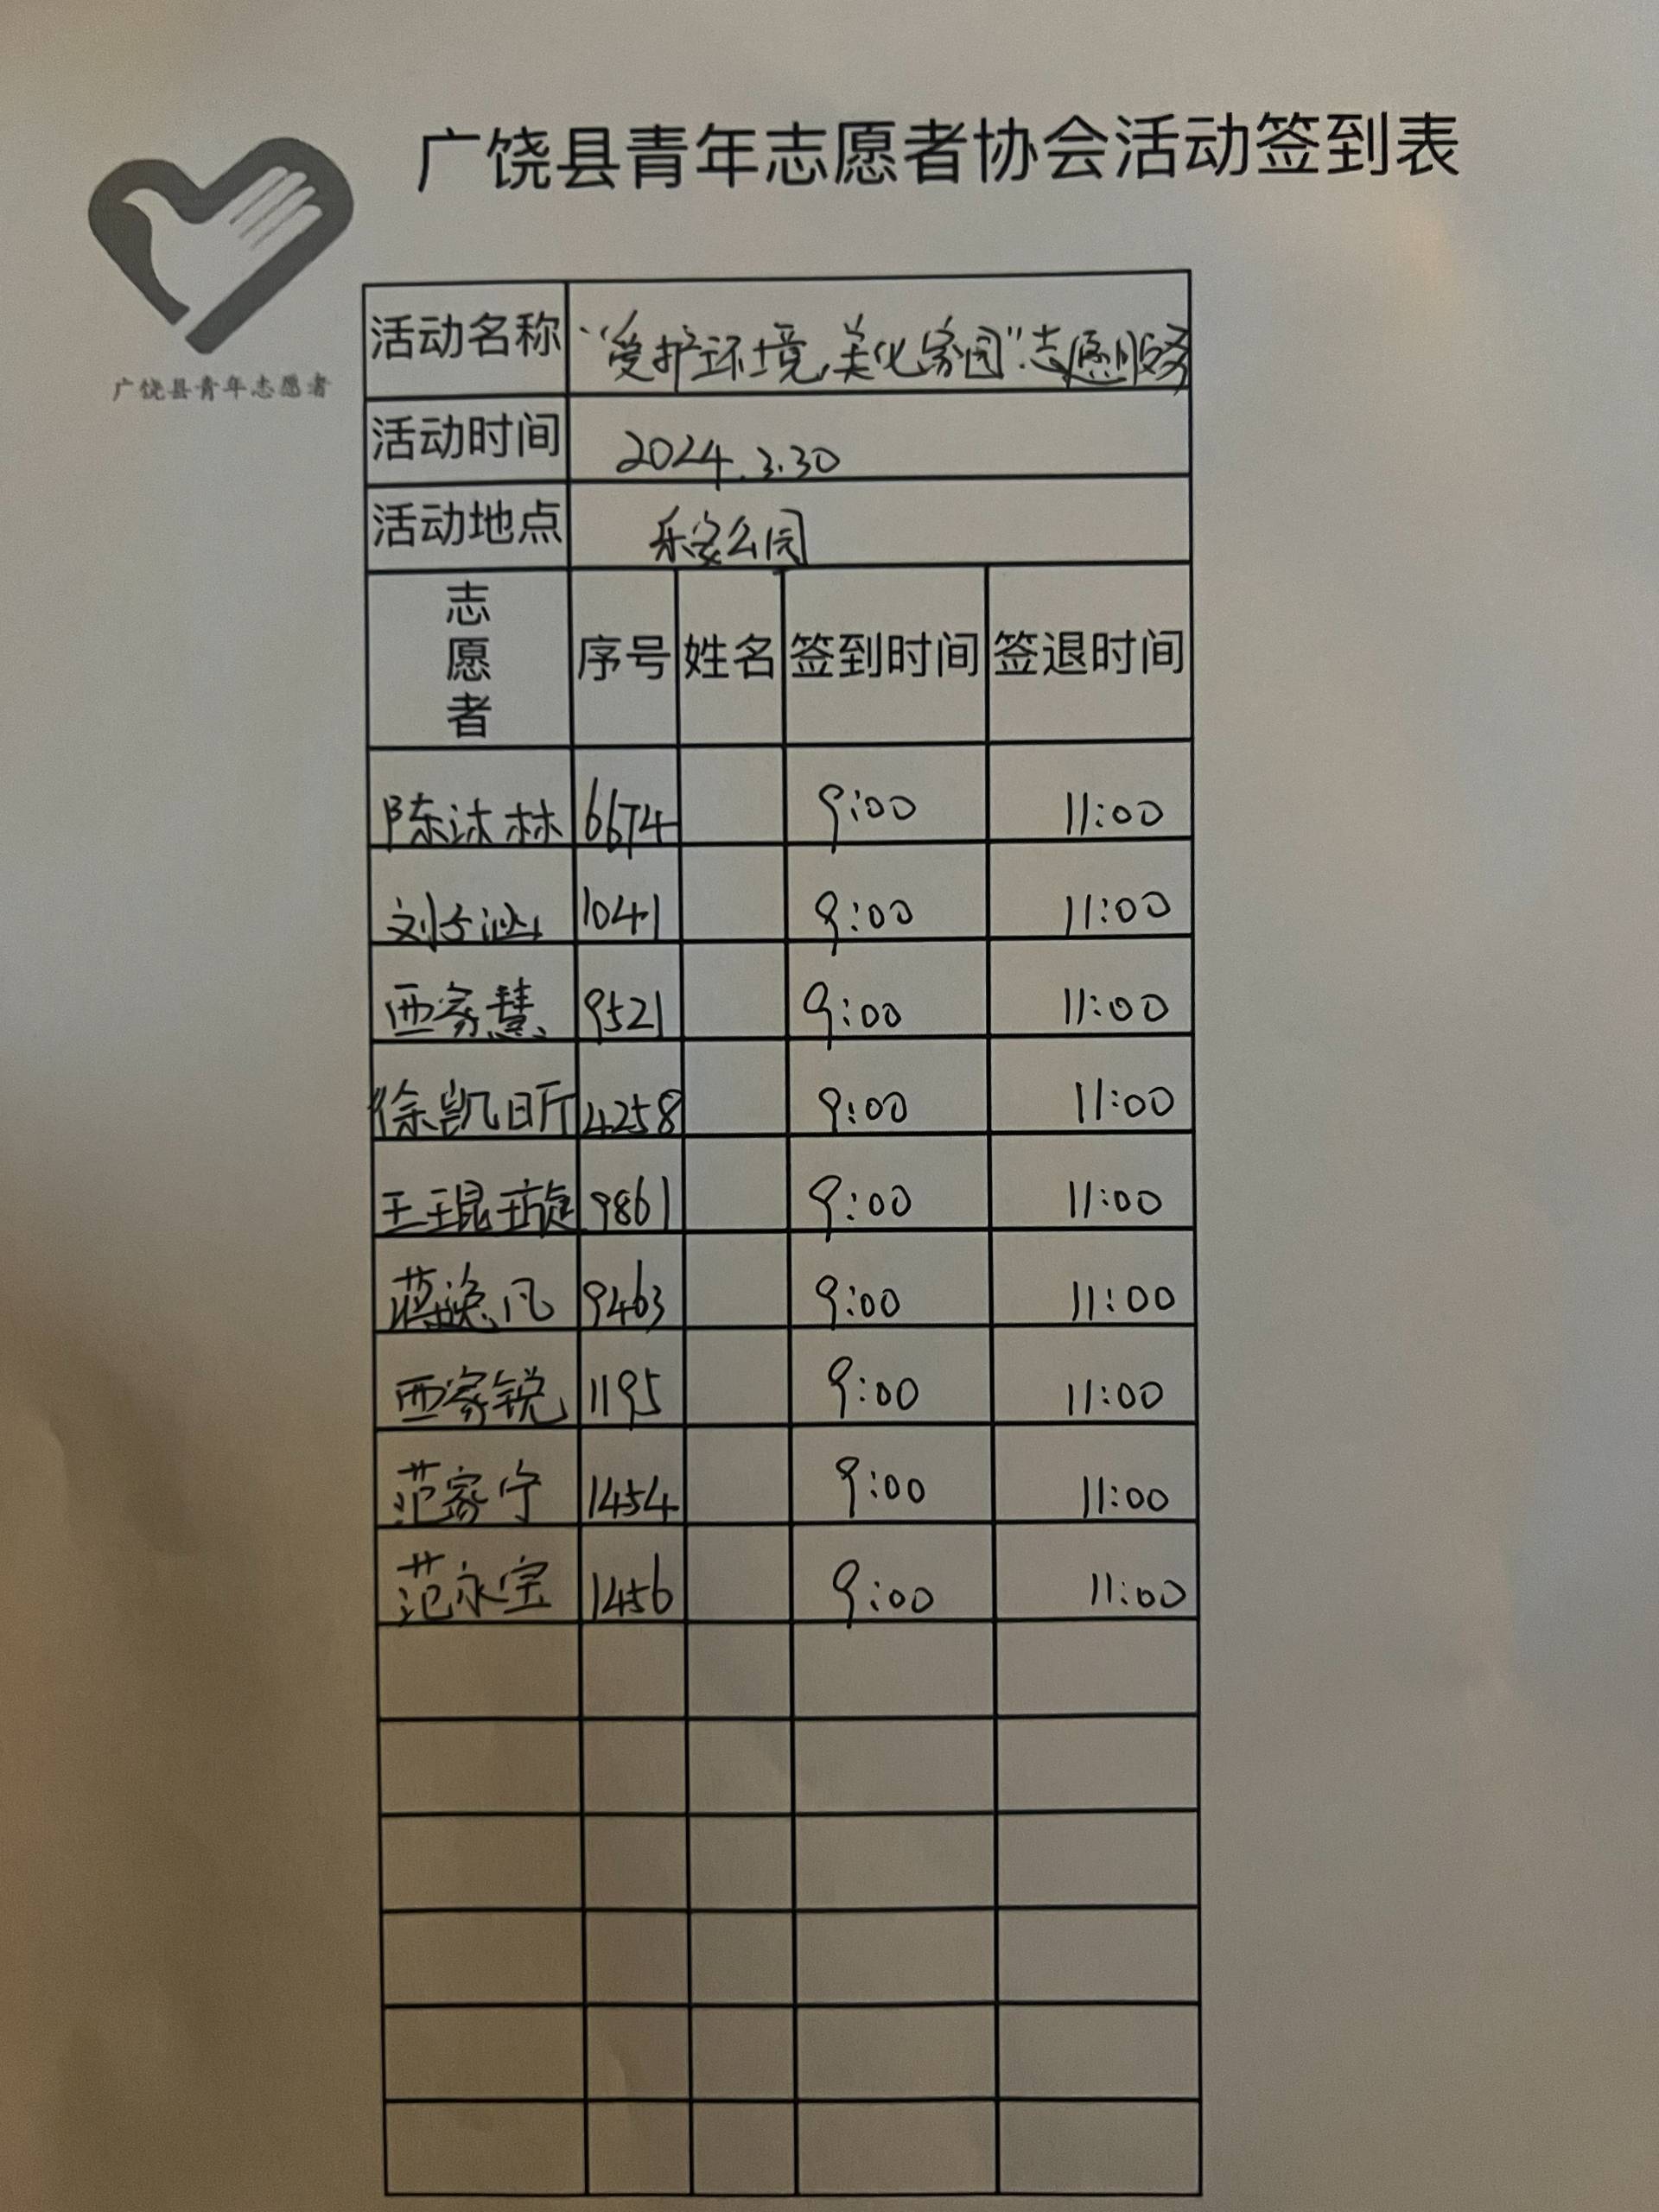 广饶县青年志愿者协会活动签到表
广饶县青年志愿者
活动名称 "爱护环境,美化家园"志愿服务
活动时间 2024.3.30
活动地点 乐安公园
志愿者 序号 姓名 签到时间 签退时间
陈沐林 6674 9:00 11:00
刘子涵 1041 9:00 11:00
西家慧 9521 9:00 11:00
徐凯昕 4258 9:00 11:00
王琨璇 9861 9:00 11:00
蒋逸凡 9463 9:00 11:00
西家锐 1195 9:00 11:00
范家宁 1454 9:00 11:00
范永宝 1456 9:00 11:00